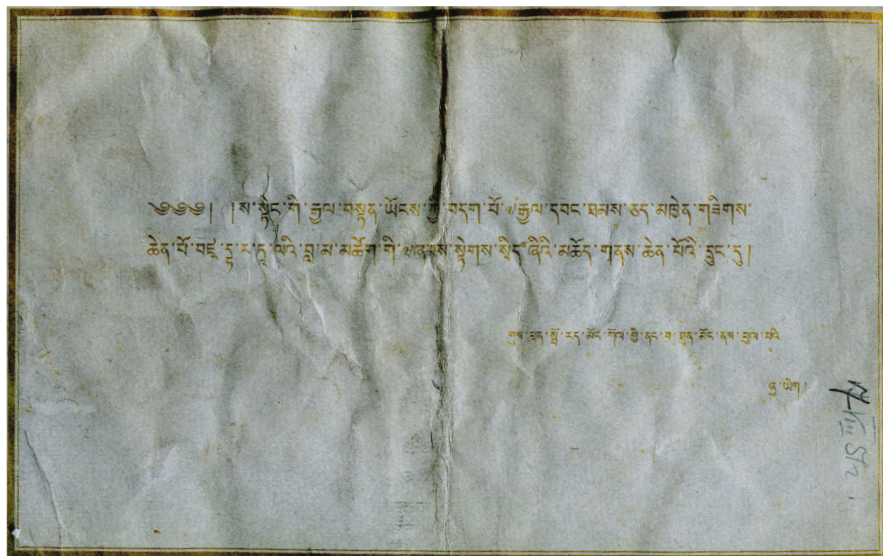 ༄༅༅། །ས་སྟེང་གི་རྒྱལ་བསྟན་ཡོངས་ཀྱི་བདག་པོ་༧རྒྱལ་དབང་ཐམས་ཅད་མཁྱེན་གཟིགས་
ཆེན་པོ་བཛྲ་དྷ་ར་ཏཱ་ལའི་བླ་མ་མཆོག་གི་༧ཞབས་སྟེགས་སྲིད་ཞིའི་མཆོད་གནས་ཆེན་པོའི་དྲུང་དུ།
གུས་བྲན་སྤྲོ་རད་མོང་ཀོལ་གྱི་ནང་མ་སྤུན་མོང་ནས་ཕུལ་བའི་
ཞུ་ཡིག །